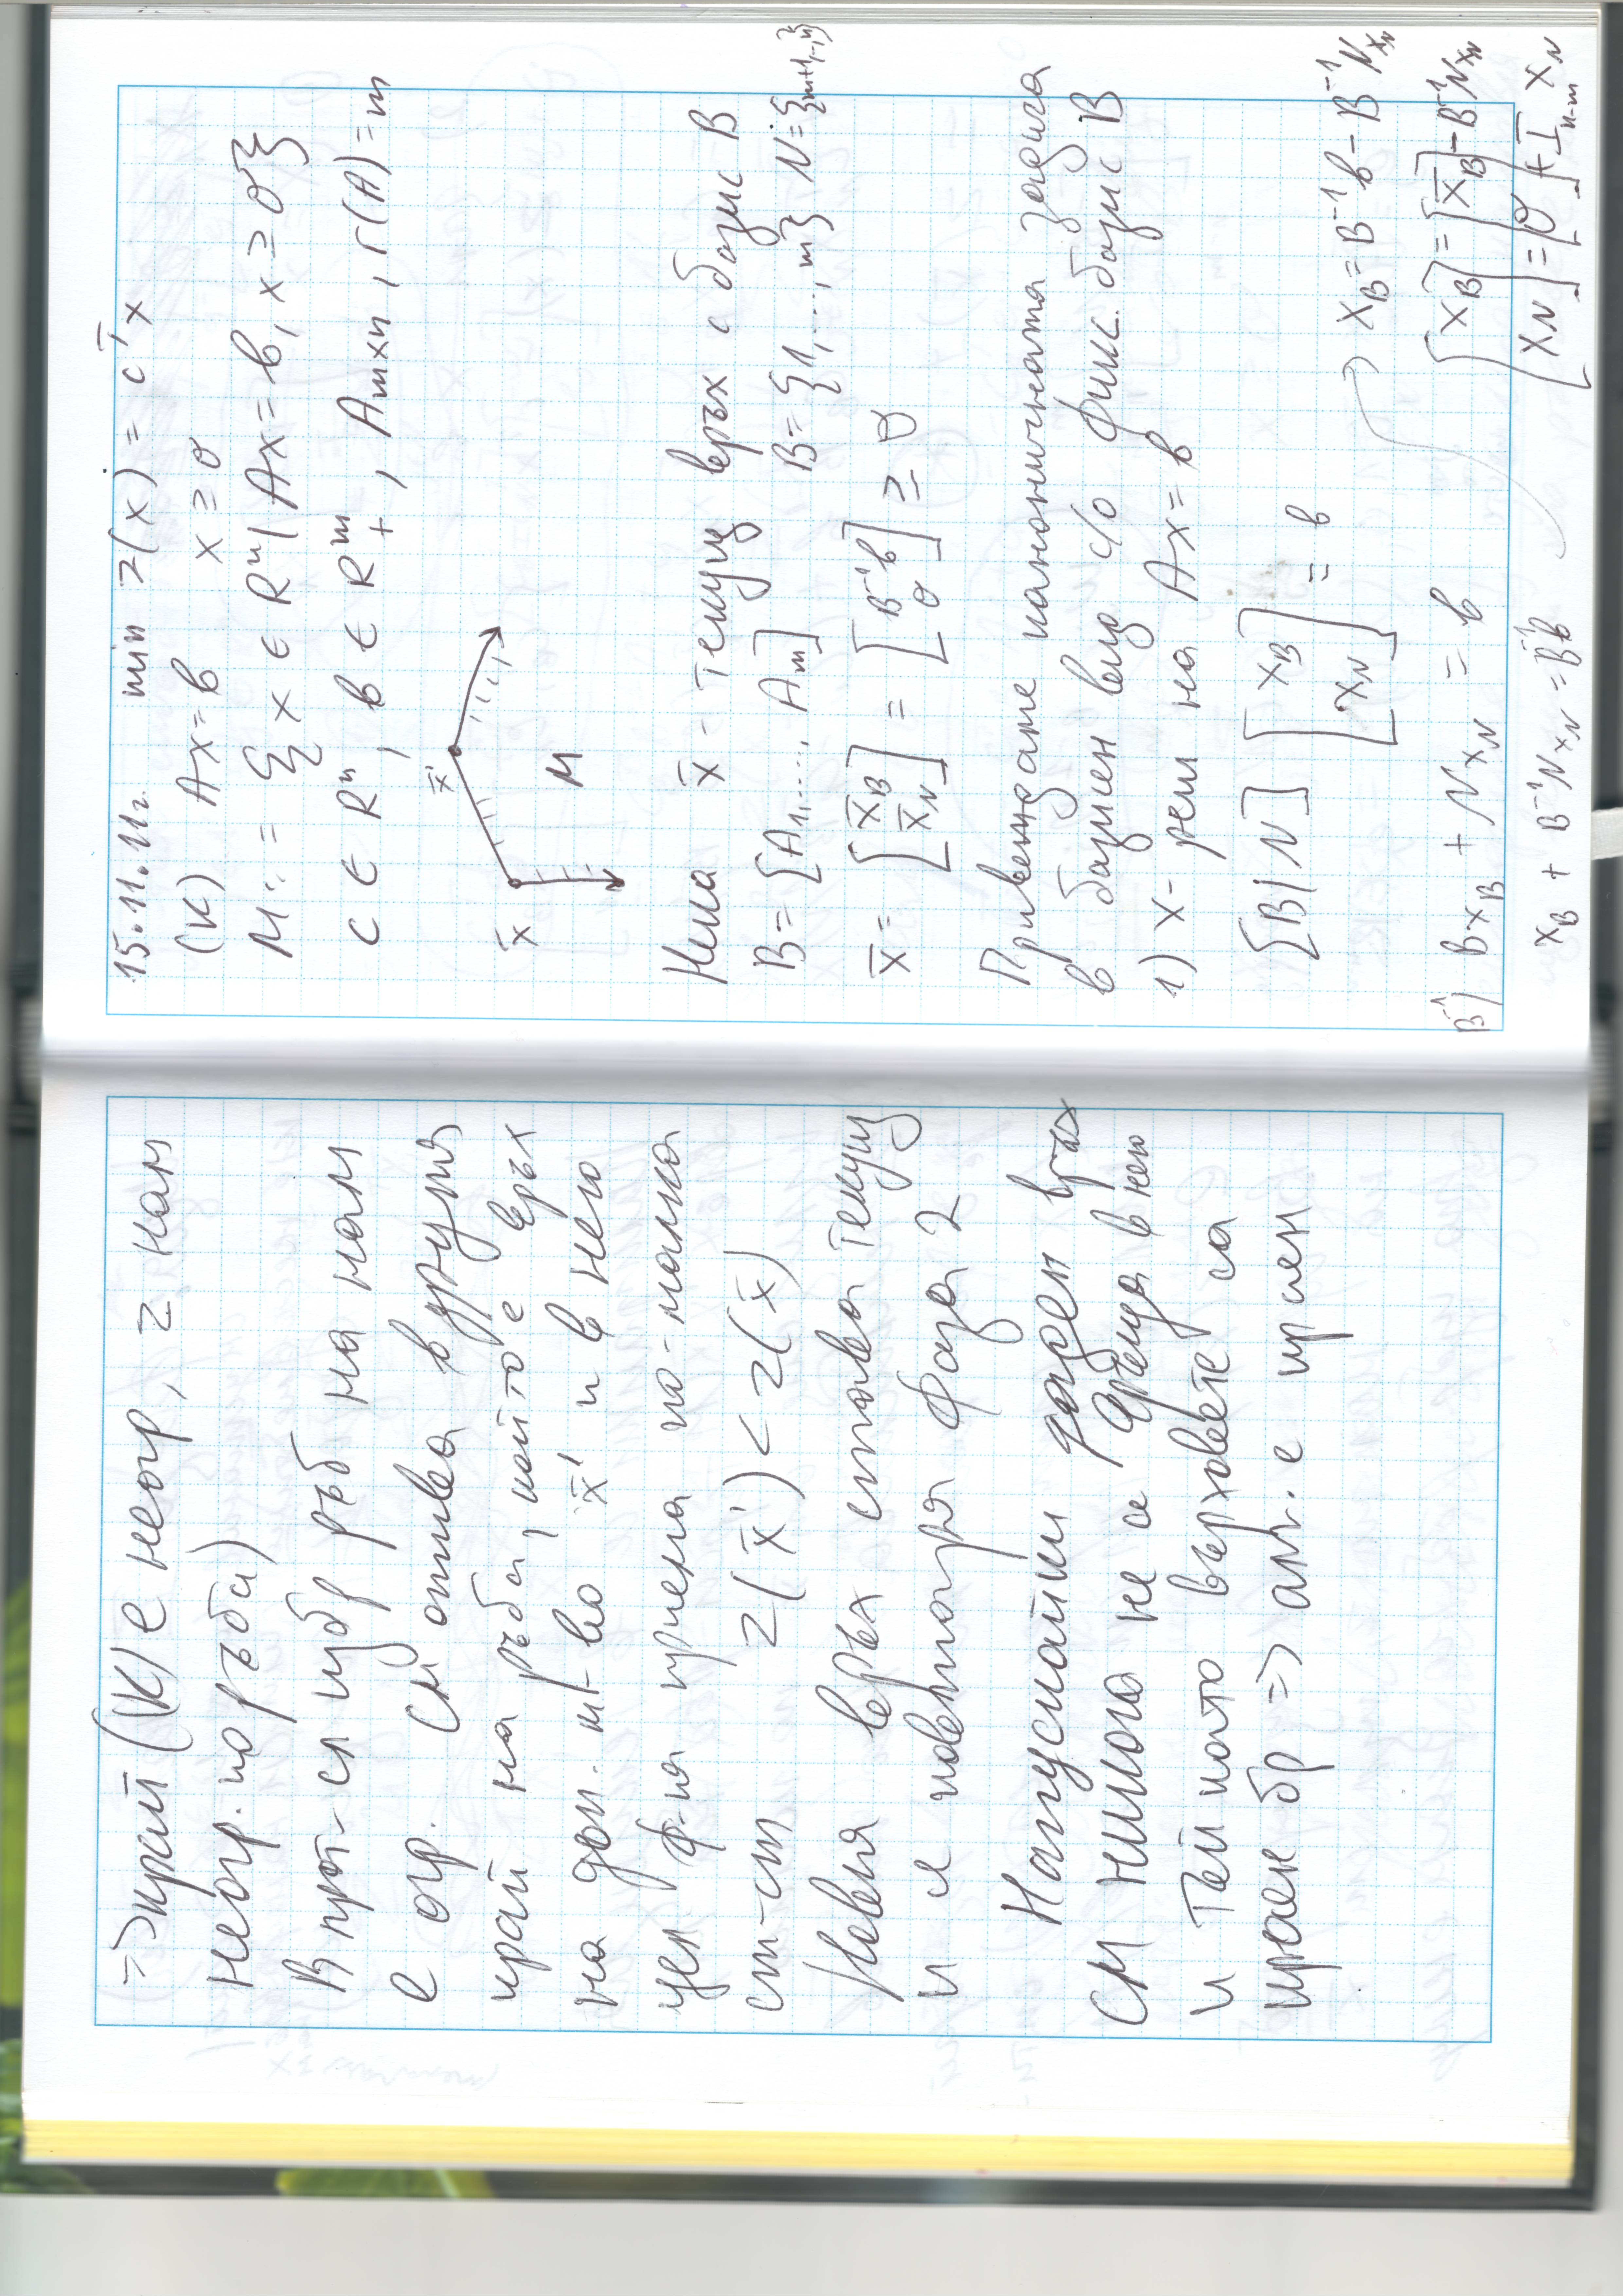 => край (К) е неогр, z нам
неогр. по ръба)
В прот. сл избр ръб на нам
е огр. СМ отива в другия
край на ръба, който е връх
на доп. мн-во x̄' и в него
цел ф-ия приема по-малка
ст-ст z(x̄') < z(x̄)
Новия връх става текущ
и се повтаря фаза 2
Натуснатии даден връх
СМ никога не се връща в него
и тъй като върховете са
краен бр => алг. е краен
15.11.11г. min z(x) = cᵀx
(К) Ax=b x ≥ 0
M := {x ∈ Rⁿ | Ax = b, x ≥ 0}
c ∈ Rⁿ, b ∈ Rᵐ₊, Aₘₓₙ, r(A)=m
x̄ x̄' M
Нека x̄ - текущ връх с базис B
B = [A₁, ..., Aₘ] B = {1, ..., m} N = {m+1, ..., n}
x̄ = [x̄_B x̄_N] = [B⁻¹b 0] ≥ 0
Привеждане каноничната задача
в базисен вид с/о фикс. базис B
1) x - реш на Ax = b
[B|N] [x_B x_N] = b
B⁻¹) Bx_B + Nx_N = b
x_B + B⁻¹Nx_N = B⁻¹b
x_B = B⁻¹b - B⁻¹Nx_N
[x_B] = [x̄_B] - B⁻¹Nx_N
[x_N] = [0] + I_{n-m} x_N